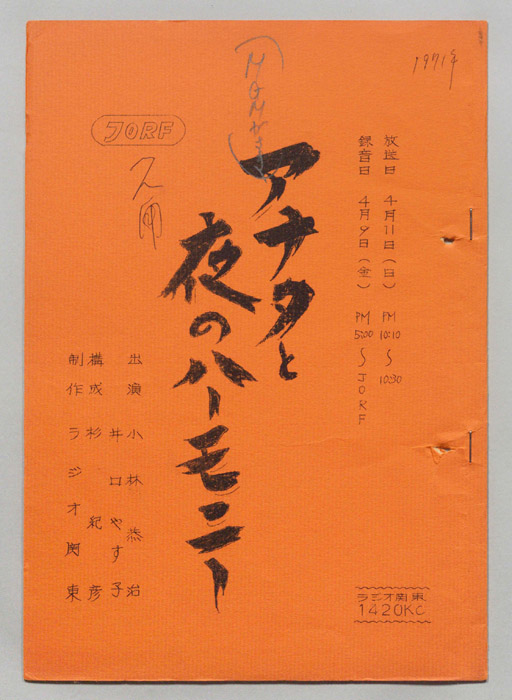 1971年
放送日 4月11日(日) PM 10:10 〜 10:30
録音日 4月9日(金) PM 5:00 〜 JORF
アナタと
夜のハーモニー
JORF
出演 小林恭治
井口やす子
構成 杉紀彦
制作 ラジオ関東
ラジオ関東
1420KC